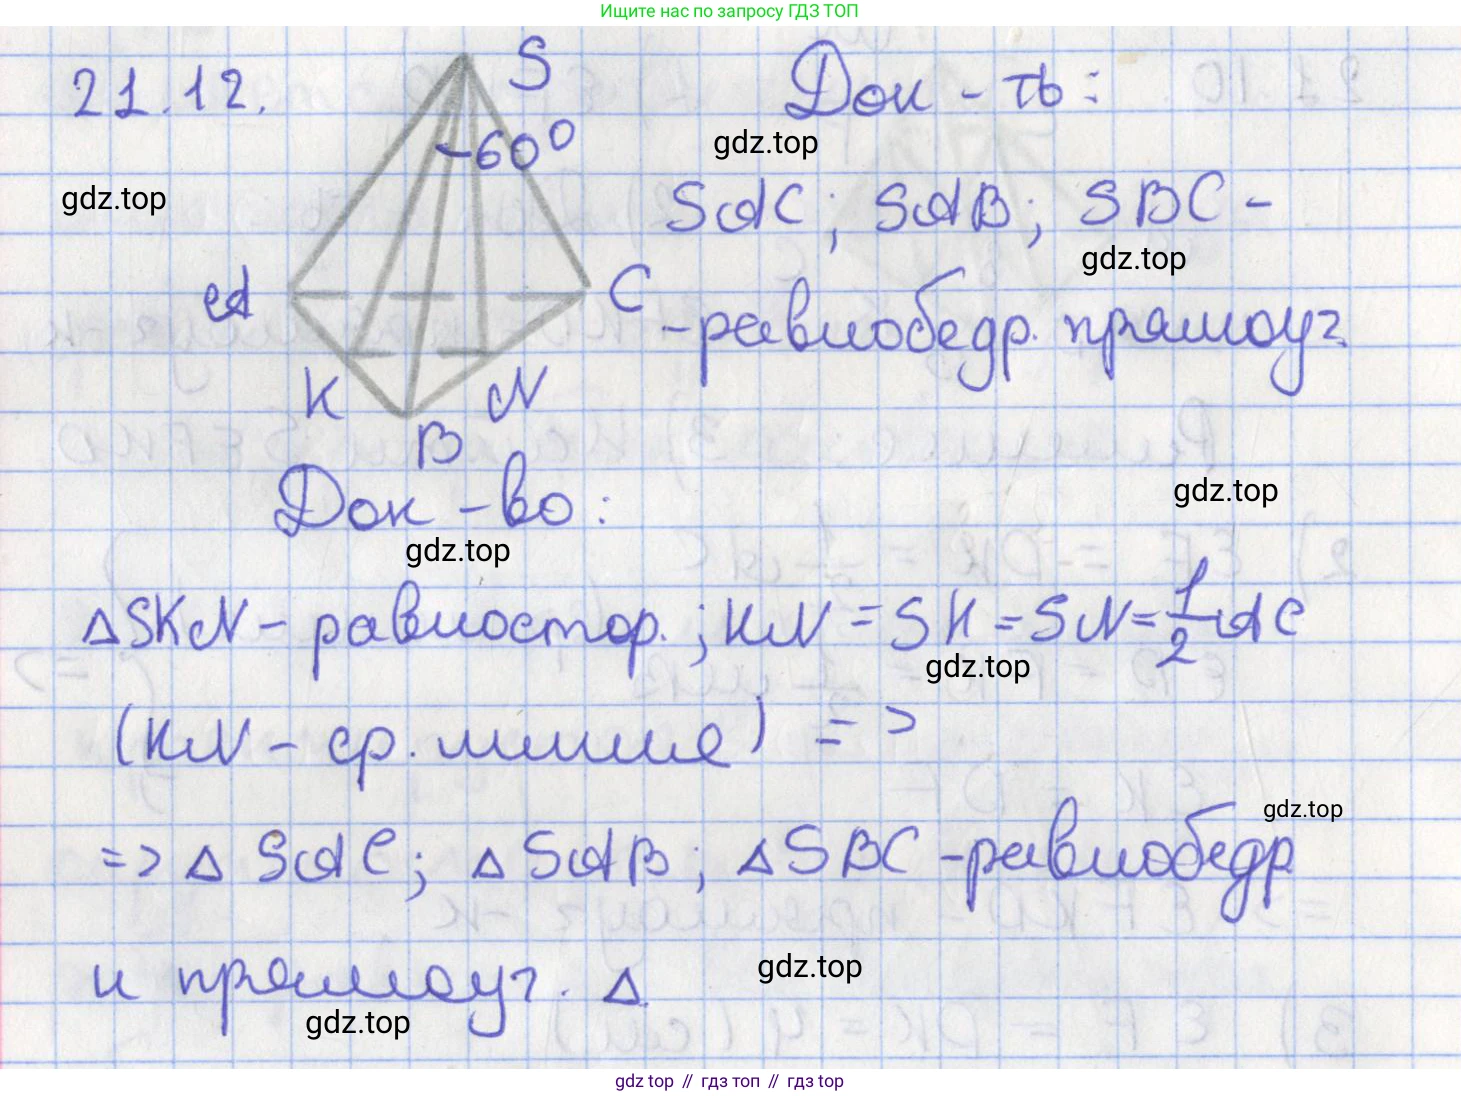 Ищите нас по запросу ГДЗ ТОП
21.12.
S
60°
A
C
K
N
B
Док-ть:
gdz.top
gdz.top
SAC; SAB; SBC -
gdz.top
- равнобедр. прямоуг.
gdz.top
Док-во:
gdz.top
△SKN - равностор.; KN = SK = SN = 1/2 AC
gdz.top
(KN - ср. линия) =>
gdz.top
=> △ SAC; △ SAB; △ SBC - равнобедр
и прямоуг. △.
gdz.top
gdz.top
gdz top // гдз топ // гдз top